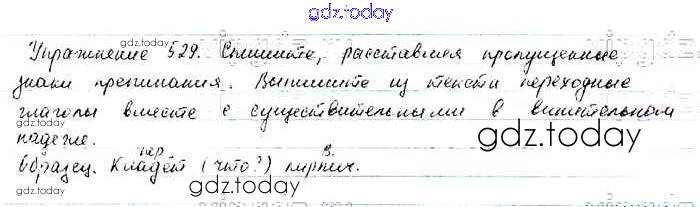 gdz.today
Упражнение 529. Спишите, расставляя пропущенные
gdz.today
знаки препинания. Выпишите из текста переходные
глаголы вместе с существительными в винительном
gdz.today
падеже.
пер. В.
Образец. Кладёт (что?) кирпич.
gdz.today